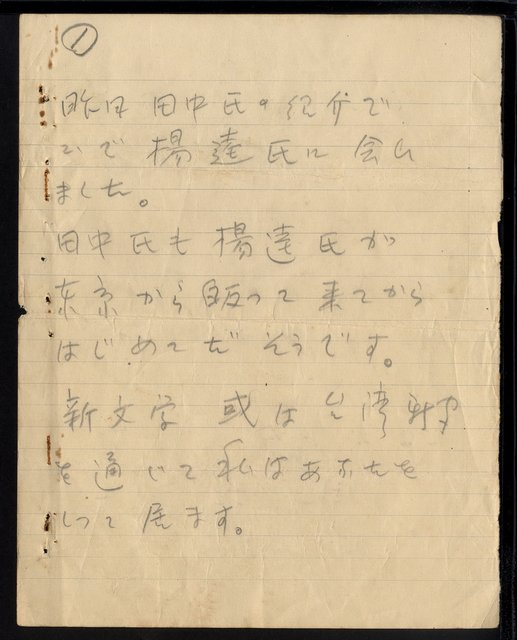 ①
昨日 田中氏の紹介で
楊逵氏に 会ひ
ました。
田中氏も 楊逵氏が
东京から皈って 来てから
はじめてだ そうです。
新文学 或は 台湾新
を通じて私はあなたを
しって居ます。